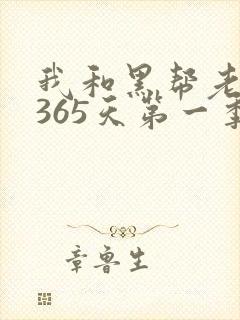 我和黑帮老
365天第一季
章鲁生